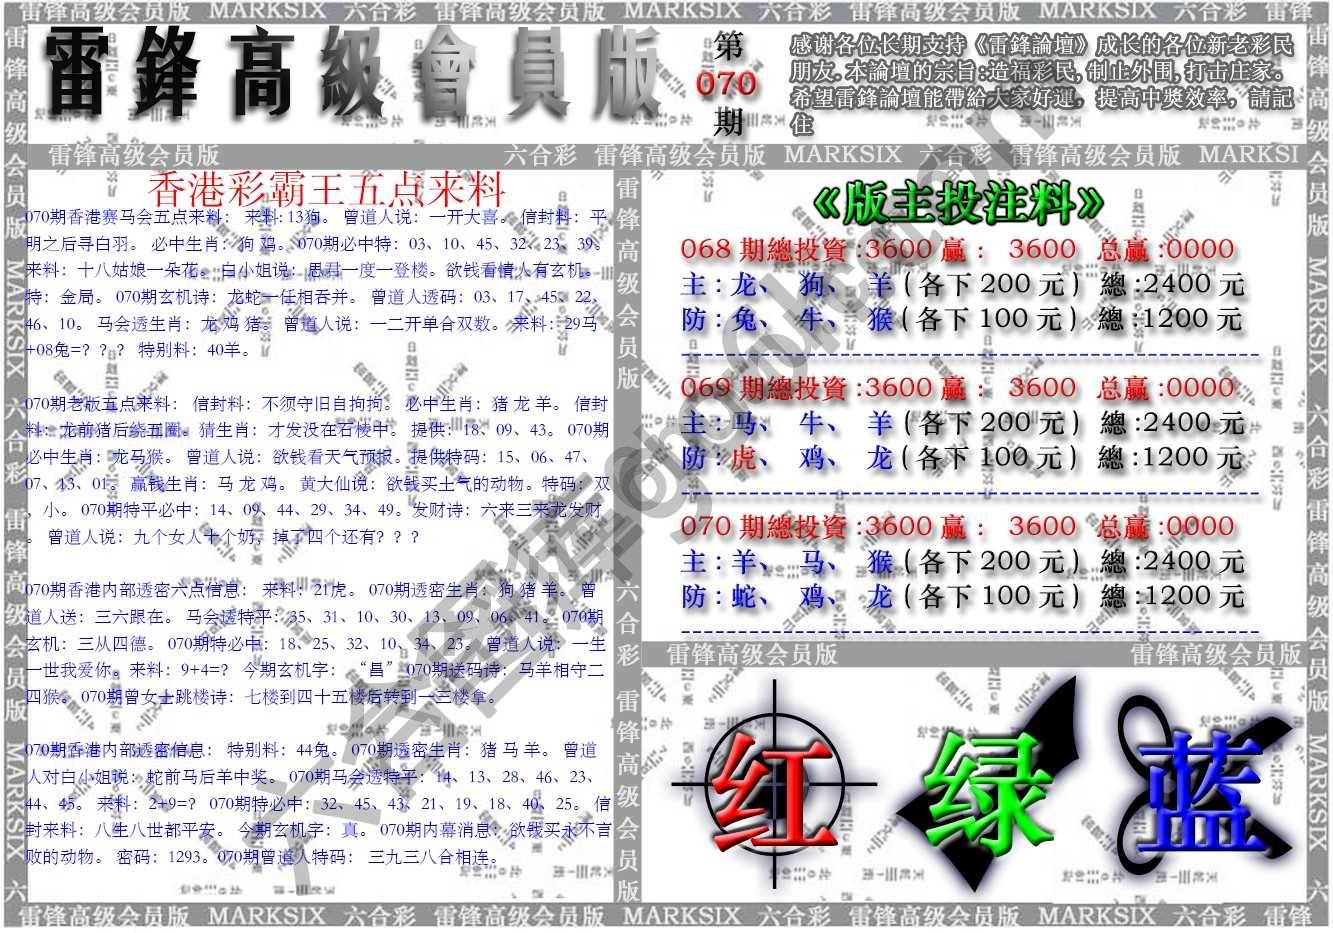 雷锋高级会员版 MARKSIX 六合彩 雷锋高级会员版 MARKSIX 六合彩 雷锋高级会员版 MARKSIX 六合彩 雷锋
雷鋒高級會員版
第
070
期
感谢各位长期支持《雷鋒論壇》成长的各位新老彩民
朋友.本論壇的宗旨:造福彩民,制止外围,打击庄家。
希望雷鋒論壇能帶給大家好運，提高中獎效率，請記
住
雷锋高级会员版
六合彩 雷锋高级会员版 MARKSIX 六合彩 雷锋高级会员版 MARKSI
香港彩霸王五点来料
070期香港赛马会五点来料： 来料:13狗。 曾道人说：一开大喜。 信封料：平
明之后寻白羽。 必中生肖：狗 鸡。 070期必中特：03、10、45、32、23、39。
来料：十八姑娘一朵花。 白小姐说：思君一度一登楼。欲钱看情人有玄机。
特：金局。 070期玄机诗：龙蛇一任相吞并。 曾道人透码：03、17、45、22、
46、10。 马会透生肖：龙 鸡 猪。 曾道人说：一二开单合双数。 来料：29马
+08兔=？？？ 特别料：40羊。
070期老版五点来料： 信封料：不须守旧自拘拘。 必中生肖：猪 龙 羊。 信封
料：龙前猪后绕五圈。猜生肖：才发没在石棱中。 提供：18、09、43。 070期
必中生肖：龙马猴。 曾道人说：欲钱看天气预报。提供特码：15、06、47、
07、13、01。 赢钱生肖：马 龙 鸡。 黄大仙说：欲钱买土气的动物。特码：双
，小。 070期特平必中：14、09、44、29、34、49。发财诗：六来三来龙发财
。 曾道人说：九个女人十个奶，掉了四个还有？？？
070期香港内部透密六点信息： 来料：21虎。 070期透密生肖：狗 猪 羊。 曾
道人送：三六跟在。 马会透特平：35、31、10、30、13、09、06、41。 070期
玄机：三从四德。 070期特必中：18、25、32、10、34、23。 曾道人说：一生
一世我爱你。来料：9+4=? 今期玄机字：“昌” 070期送码诗：马羊相守二
四猴。 070期曾女士跳楼诗：七楼到四十五楼后转到一三楼拿。
070期香港内部透密信息： 特别料：44兔。 070期透密生肖：猪 马 羊。 曾道
人对白小姐说：蛇前马后羊中奖。 070期马会透特平：14、13、28、46、23、
44、45。 来料：2+9=? 070期特必中：32、45、43、21、19、18、40、25。 信
封来料：八生八世都平安。 今期玄机字：真。 070期内幕消息：欲钱买永不言
败的动物。 密码：1293。070期曾道人特码： 三九三八合相连。
《版主投注料》
068 期總投資 :3600 赢 : 3600 总赢 :0000
主 : 龙、 狗、 羊 ( 各下 200 元 ) 總 :2400 元
防 : 兔、 牛、 猴 ( 各下 100 元 ) 總 :1200 元
069 期總投資 :3600 赢 : 3600 总赢 :0000
主 : 马、 牛、 羊 ( 各下 200 元 ) 總 :2400 元
防 : 虎、 鸡、 龙 ( 各下 100 元 ) 總 :1200 元
070 期總投資 :3600 赢 : 3600 总赢 :0000
主 : 羊、 马、 猴 ( 各下 200 元 ) 總 :2400 元
防 : 蛇、 鸡、 龙 ( 各下 100 元 ) 總 :1200 元
雷锋高级会员版
雷锋高级会员版
红 绿 蓝
雷锋高级会员版 MARKSIX 六合彩 雷锋高级会员版 MARKSIX 六合彩 雷锋高级会员版 MARKSIX 六合彩 雷锋